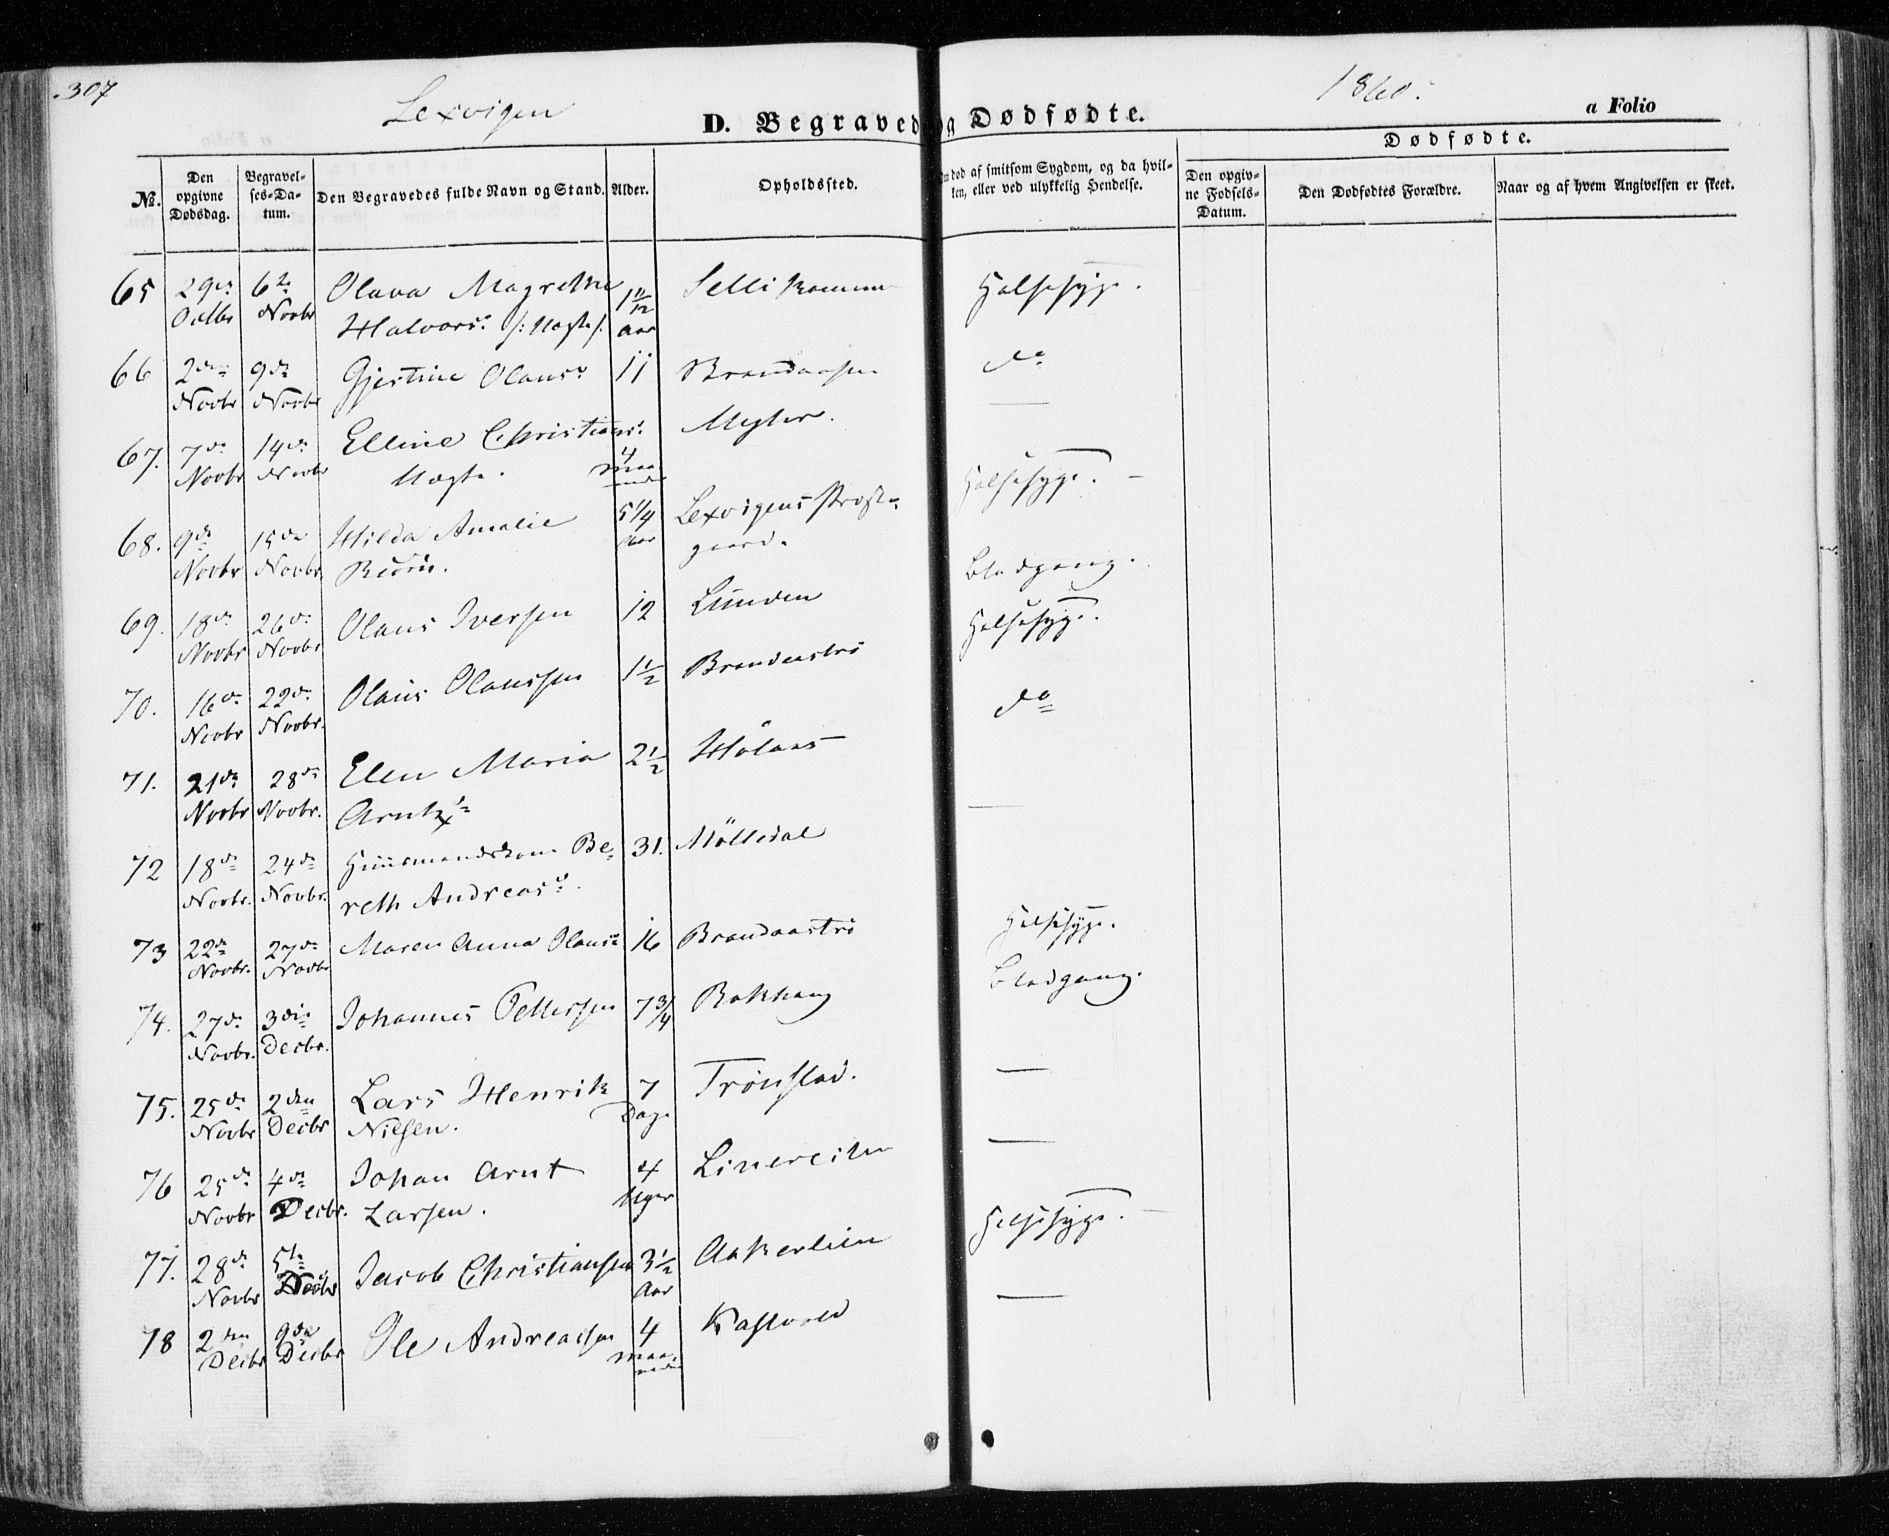 307
Lexvigen
1860.
D. Begraved og Dødfødte.
a Folio
Dødfødte.
No.
Den opgivne Dødsdag.
Begravelses-Datum.
Den Begravedes fulde Navn og Stand.
Alder.
Opholdssted.
død af smitsom Sygdom, og da hvilken, eller ved ulykkelig Hendelse.
Den opgivne Fødsels-Datum.
Den Dødfødtes Forældre.
Naar og af hvem Angivelsen er skeet.
65 29de 6te Olava Magrethe 1 11/12 Selli Halssyge.
Octbr Novbr Halvors. aar
66 2den 9de Gjertine Olaus. 11 Brandaasen do
Novbr Novbr
67. 7de 14de Elline Christians. 4 Myhr. —
Novbr Novbr Uægte. maaneder
68. 9de 15de Hilda Amalie 5 1/4 Lexvigens Præste- Halssyge. —
Novbr Novbr. Biörn. Aar gaard.
69. 18de 26de Olaus Iversen 12 Lunden Blodgang.
Novbr Novbr
70. 16de 22de Olaus Olaussen 1 1/2 Brandaaströ Halssyge.
Novbr Novbr.
71. 21de 28de Elen Maria 2 1/2 Hölaas do
Novbr Novbr. Arnt
72 18de 24de Huusmandskone Be- 31. Mölledal —
Novbr. Novbr. reth Andreas.
73 22de 27de Maren Anna Olaus. 16 Brandaaströ Halssyge.
Novbr. Novbr
74. 27de 3die Johannes Pettersen 7 3/4 Bakhaug Blodgang.
Novbr. Decbr.
75. 25de 2den Lars Henrik 7 Trönstad. —
Novbr Decbr Nilsen. Dage
76 25de 4de Johan Arnt 4 —
Novbr Decbr. Larsen. Uger
77. 28de 5te Jacob Christiansen 3 1/2 Aakerlien Halssyge. —
Novbr Decbr Aar
78 2den 9de Ole Andreassen 4 —
Decbr Decbr maaneder